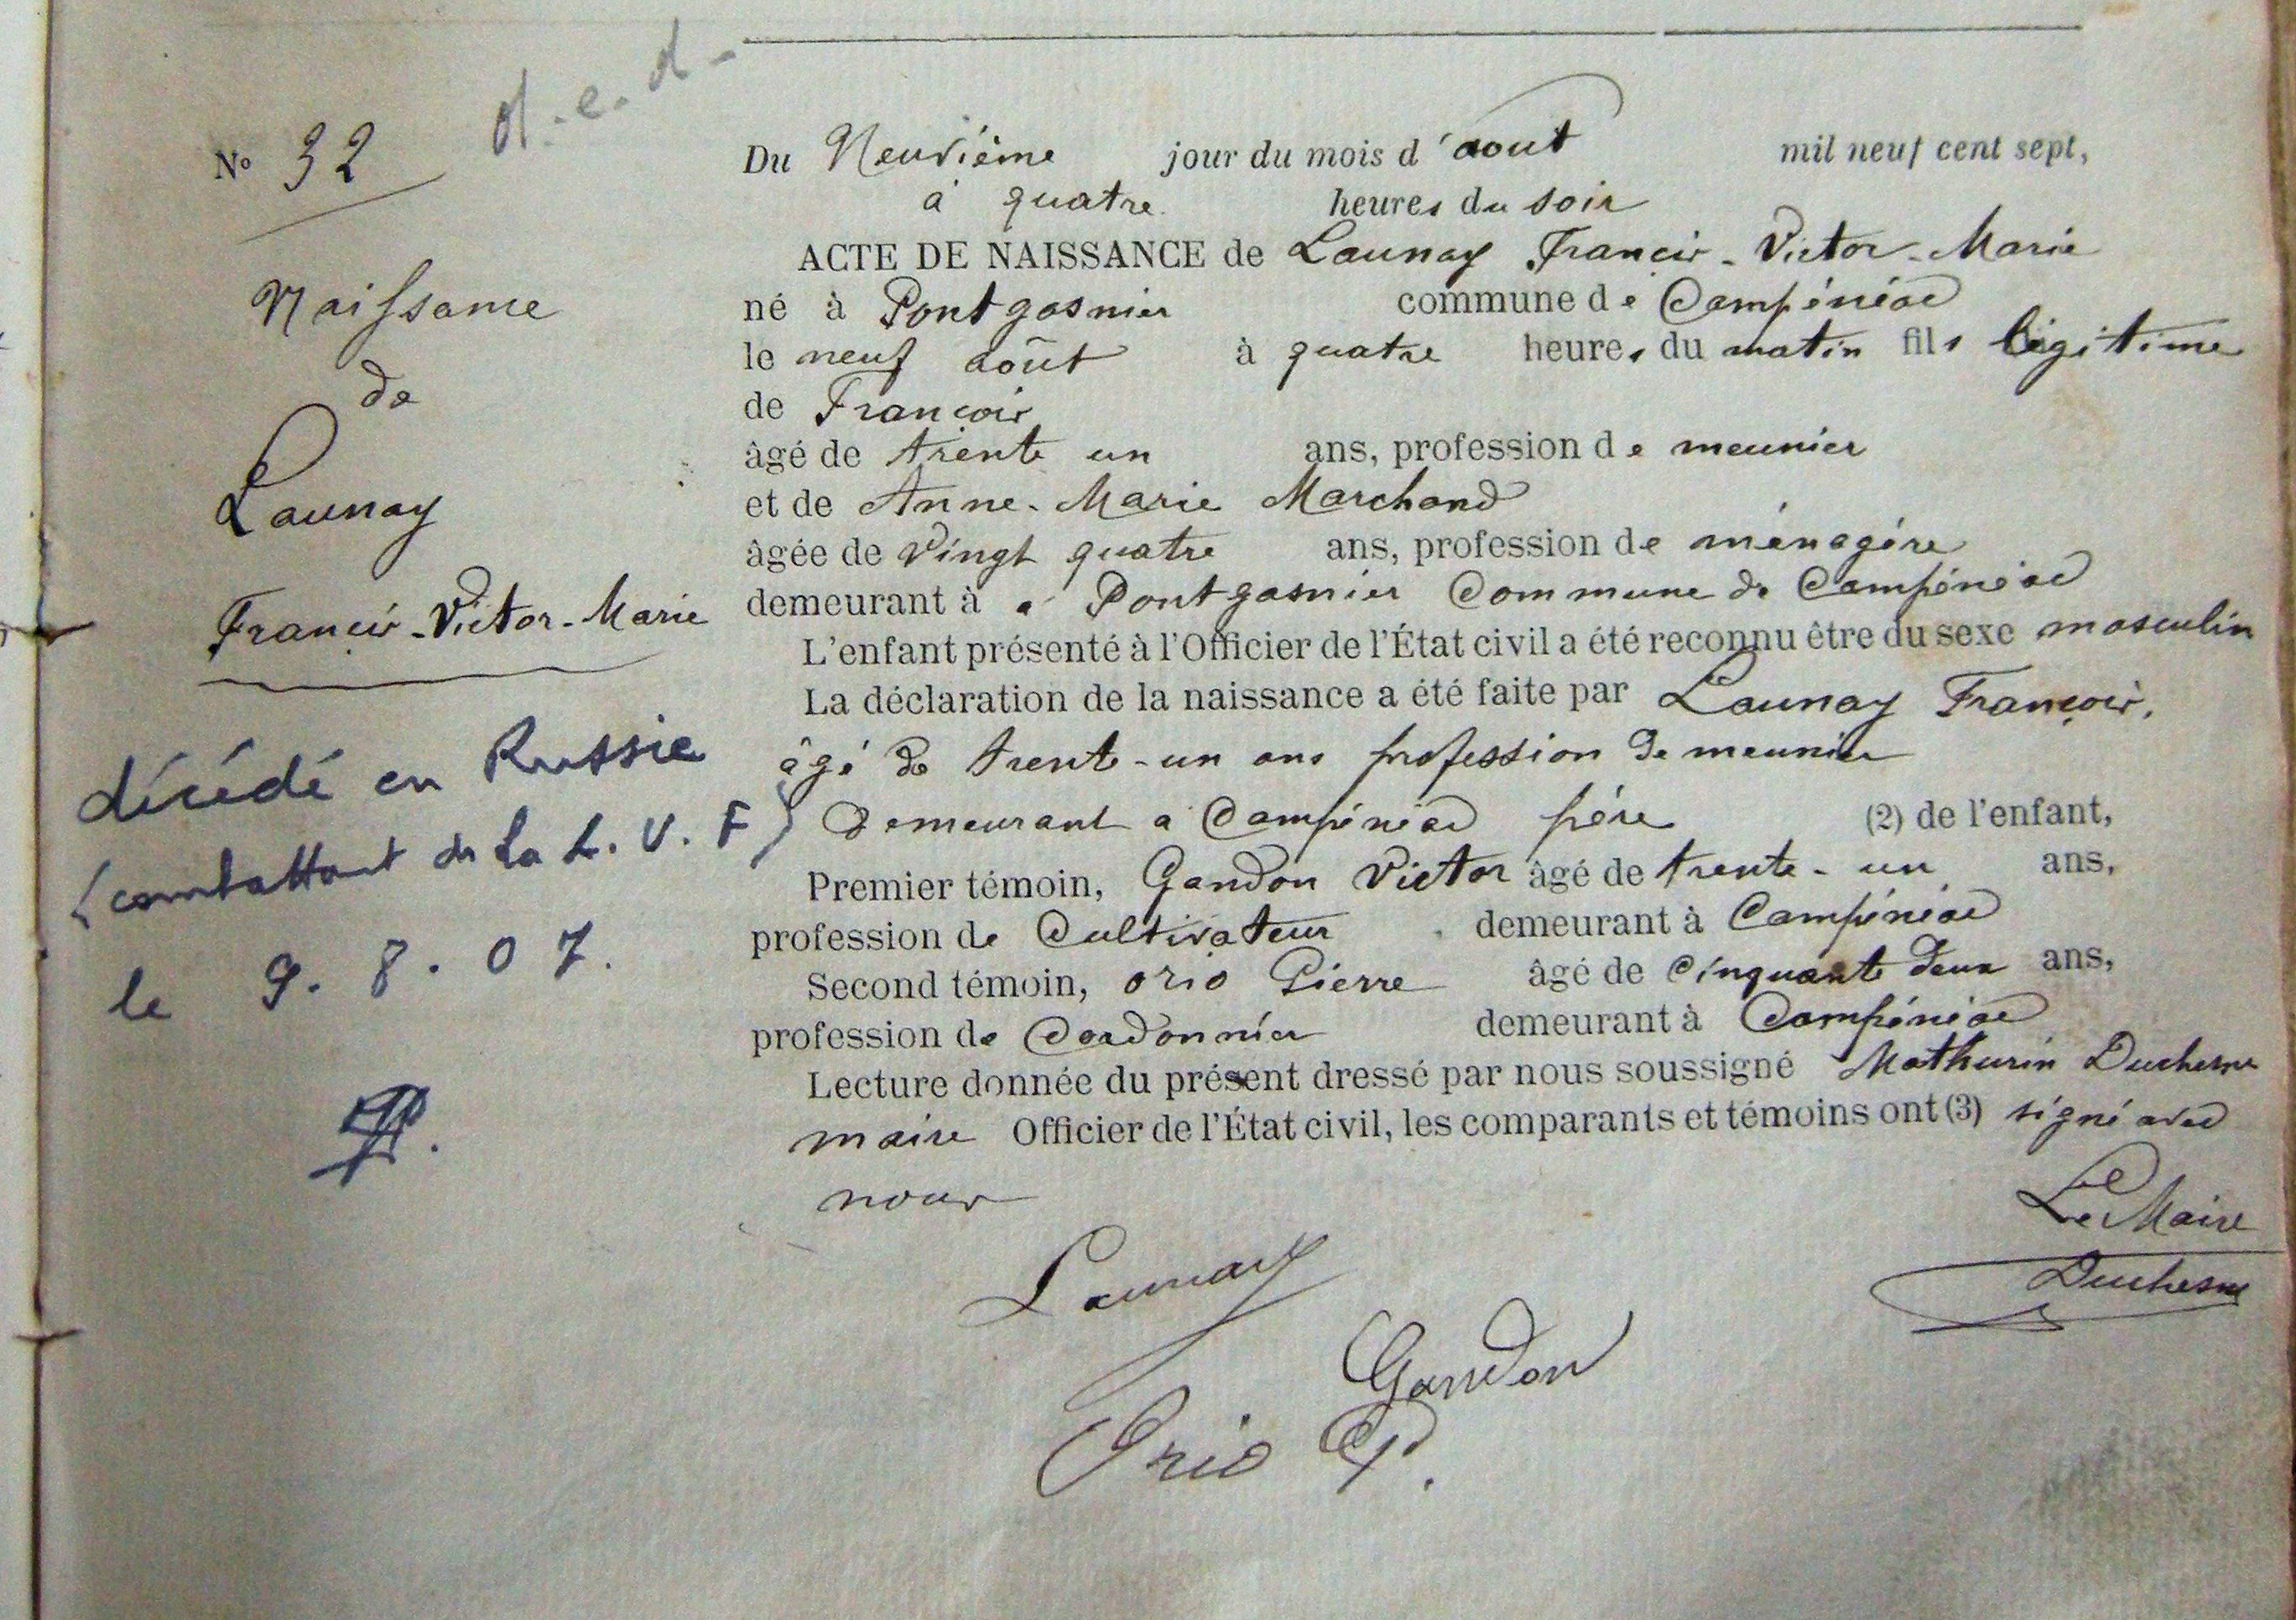 d.e.d.
N° 32
Naissance
de
Launay
Francis-Victor-Marie
décédé en Russie
(combattant de la L.V.F)
le 9.8.07.
Du Neuvième jour du mois d'aout mil neuf cent sept,
à quatre heures du soir
ACTE DE NAISSANCE de Launay Francis-Victor-Marie
né à Pontgasnier commune de Campénéac
le neuf août à quatre heures du matin fils légitime
de François
âgé de trente un ans, profession de meunier
et de Anne-Marie Marchand
âgée de vingt quatre ans, profession de ménagère
demeurant à a Pontgasnier Commune de Campénéac
L'enfant présenté à l'Officier de l'État civil a été reconnu être du sexe masculin
La déclaration de la naissance a été faite par Launay François,
âgé de trente-un ans profession de meunier
demeurant a Campénéac père (2) de l'enfant,
Premier témoin, Gandon Victor âgé de trente-un ans,
profession de Cultivateur demeurant à Campénéac
Second témoin, Orio Pierre âgé de Cinquante deux ans,
profession de Cordonnier demeurant à Campénéac
Lecture donnée du présent dressé par nous soussigné Mathurin Duchesne
maire Officier de l'État civil, les comparants et témoins ont (3) signé avec
nous
Le Maire
Launay
Duchesne
Gandon
Orio P.